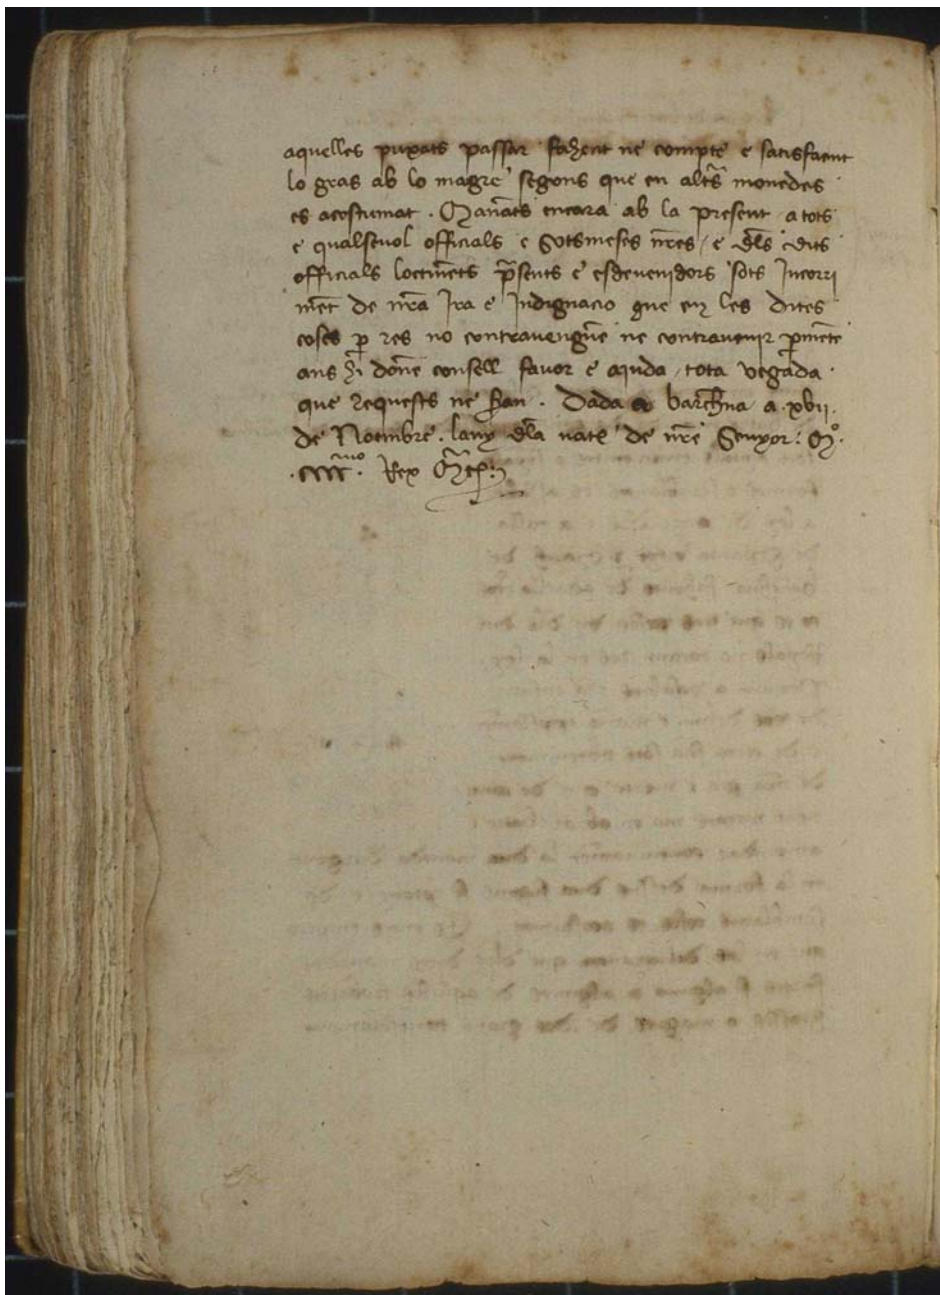 aquelles puxats passar fahent ne compte e satisfaent
lo gras ab lo magre segons que en altrs monedes
es acostumat . Manats encara ab la present a tots
e qualseuol officials e sotsmeses nres / e dls dits
officials loctinets psents e esdeuenidors sots Incorri
met de nra Ira e Indignacio que en les dites
coses p res no contrauengue ne contrauenir pmete
ans hi done consell fauor e aiuda / tota vegada
que requests ne sian . Dada a barchna a . xvij .
de Noembre . lany dla nats de nre Senyor . Mº .
Rex